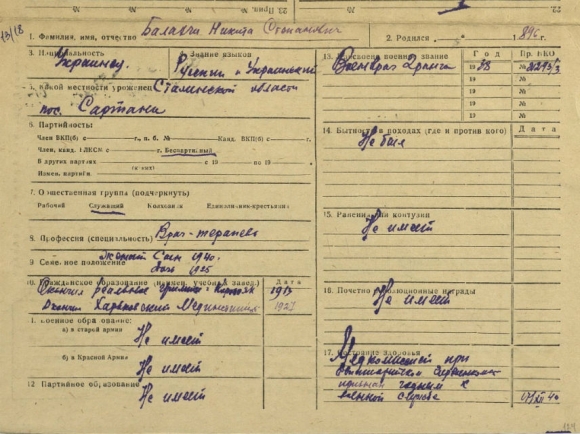 1. Фамилия, имя, отчество Балабич Никита Степанович
2. Родился 1896 г.
3. Национальность
Украинец
Знание языков
Русский и Украинский
уроженец Сталинской области
пос. Сартана
6. Партийность:
Член ВКП(б) с г., п. б. № Канд. ВКП(б) с
Член, канд. ВЛКСМ с г. Беспартийный
В других партиях с 19 по 19
7. Общественная группа (подчеркнуть)
Рабочий Служащий Колхозник Единоличник-крестьянин
8. Профессия (специальность) Врач-терапевт
9. Семейное положение Женат Сын 1940.
дочь 1925
10. Гражданское образование Дата
Окончил реальное училище 1915
Окончил Харьковский Мединститут 1923
11. Военное образование:
а) в старой армии
Не имеет
б) в Красной Армии
Не имеет
12. Партийное образование
Не имеет
13. Присвоено военное звание Год Пр. НКО
Военврач 2 ранга 19 38
19
19
19
14. Бытность в походах (где и против кого) Дата
Не был
15. Ранения и контузии
Не имеет
16. Почетно-революционные награды
Не имеет
17. Состояние здоровья
Медкомиссией при
признан годным к
военной службе